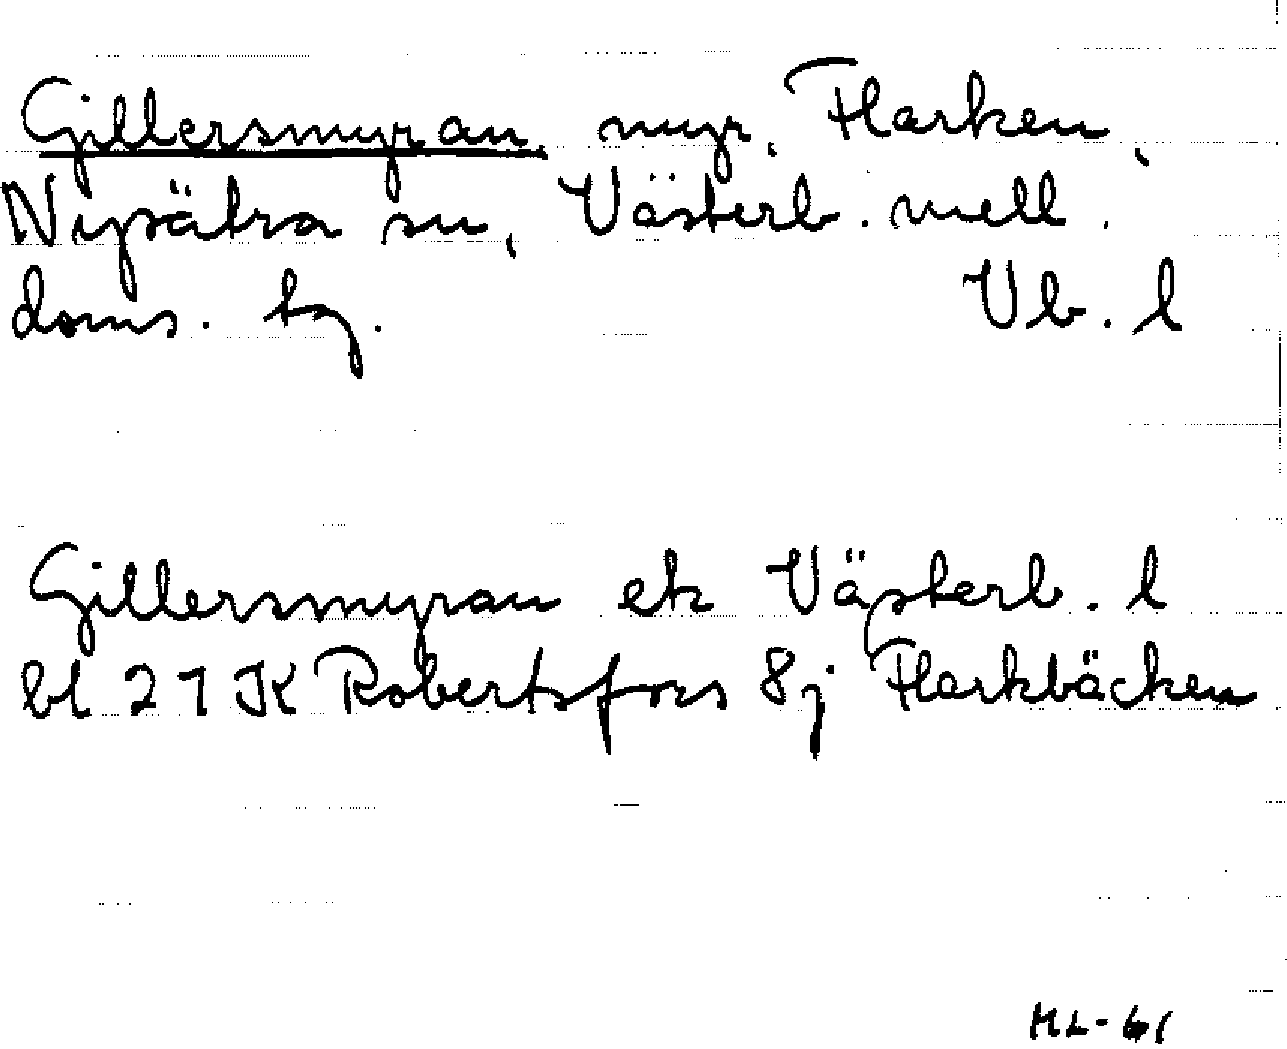 Gillersmyran, myr, Flarken,
Nysätra sn, Västerb. mell.
doms. tg. Vb. l
Gillersmyran ek Västerb. l
bl 21 K Robertsfors 8j Flarkbäcken
HL-61